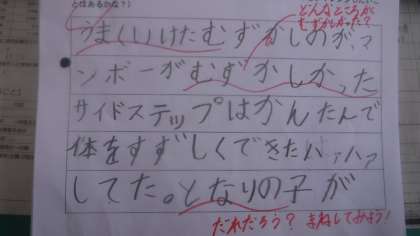 とはあるかな?)
どんなところが
むずかしかった?
うまくいけたむずかしのが、マ
ンボーがむずかしかった
サイドステップはかんたんで
体をすずしくできたハァハァ
してた。となりの子が
だれだろう? まねしてみよう!